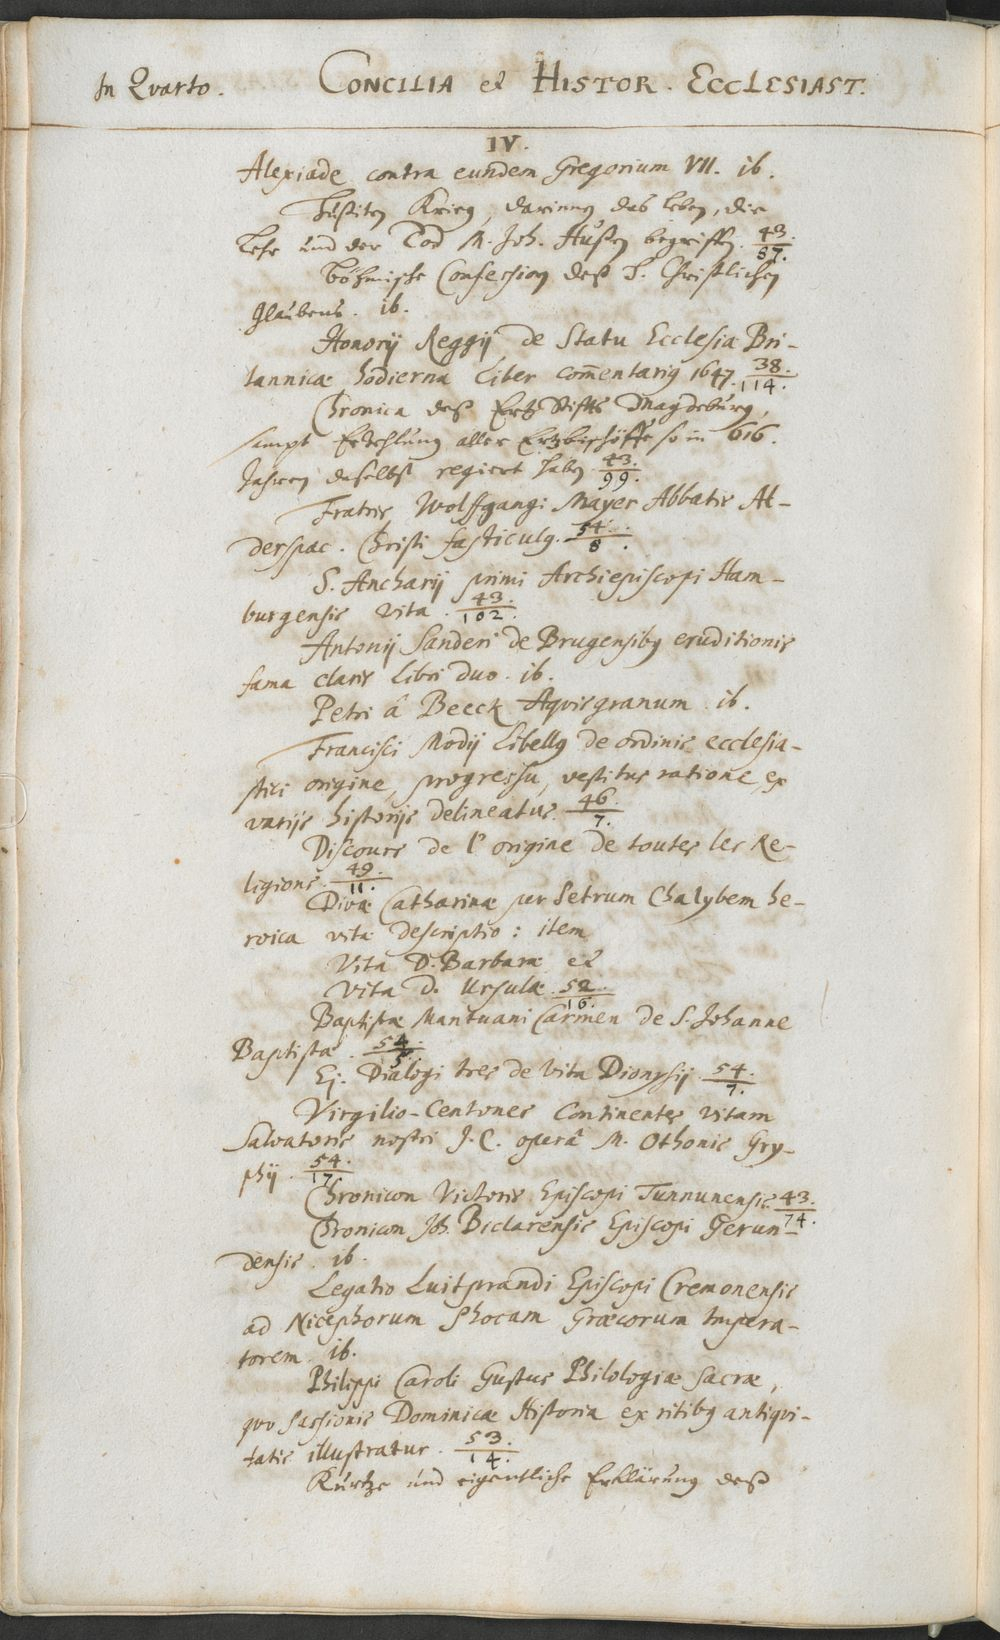 In Qvarto. CONCILIA et HISTOR. ECCLESIAST.
IV.
Alexiade contra eundem Gregorium VII. ib.
Hußiten Krieg, darinnen das leben, die
Lehr und der Tod M. Joh. Hußen begriffen. 43./87.
Böhmische Confession deß H. Christlichen
glaubens. ib.
Honorij Reggij de Statu Ecclesiæ Bri-
tannicæ hodierna Liber com̄entariꝰ 1647. 38./114.
Chronica deß Ertz Stiffts Magdeburg,
sampt Erzehlung aller Ertzbischöffe so in 616.
Jahren daselbst regiert haben 43./99.
Fratris Wolffgangi Mayer Abbatis Al-
derspac. Christi fasciculꝰ. 54./8.
S. Ancharij primi Archiepiscopi Ham-
burgensis vita. 43./102.
Antonij Sanderi de Brugensibꝰ eruditionis
fama claris Libri duo. ib.
Petri â Beeck Aqvisgranum. ib.
Francisci Modij Libellꝰ de ordinis ecclesia-
stici origine, progressu, vestitus ratione, ex
varijs historijs delineatus. 46./7.
Discours de l' origine de toutes les Re-
ligions. 49./11.
Divæ Catharinæ per Petrum Chalybem he-
roica vitæ descriptio: item
Vita D. Barbaræ et
Vita D. Ursulæ. 52./16.
Baptistæ Mantuani Carmen de S. Johanne
Baptista. 54./5.
Ej. Dialogi tres de vita Dionysij. 54./7.
Virgilio-Centones Continentes vitam
Salvatoris nostri J.C. operâ M. Othonis Gry-
phij. 54./17.
Chronicon Victoris Episcopi Tunnunensis. 43./74.
Chronicon Joh. Biclarensis Episcopi Gerun-
densis. ib.
Legatio Luitprandi Episcopi Cremonensis
ad Nicephorum Phocam Græcorum Impera-
torem. ib.
Philippi Caroli Gustus Philologiæ sacræ,
qvo Passionis Dominicæ Historia ex ritibꝰ antiqvi-
tatis illustratur. 53./14.
Kurtze und eigentliche Erklärung deß